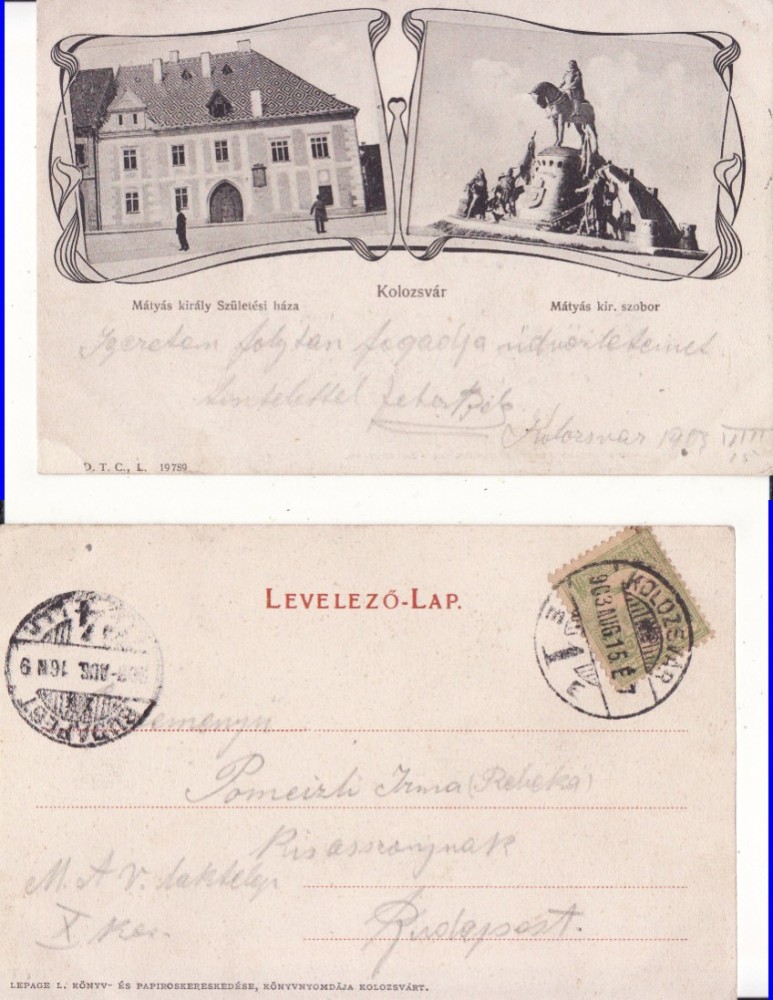 Kolozsvár
Mátyás király Születési háza
Mátyás kir. szobor
Igéretem folytán fogadja üdvözletemet
tisztelettel Fehér Béla
Kolozsvár 1903 VIII/15
D. T. C., L. 19789
LEVELEZŐ-LAP.
KOLOZSVÁR
903 AUG. 15. E 7
BUDAPEST
AUG. 16 N 9
Pomeizli Irma (Rebeka)
Kisasszonynak
M. A V. laktelep
X ker.
Budapest.
LEPAGE L. KÖNYV- ÉS PAPIROSKERESKEDÉSE, KÖNYVNYOMDÁJA KOLOZSVÁRT.